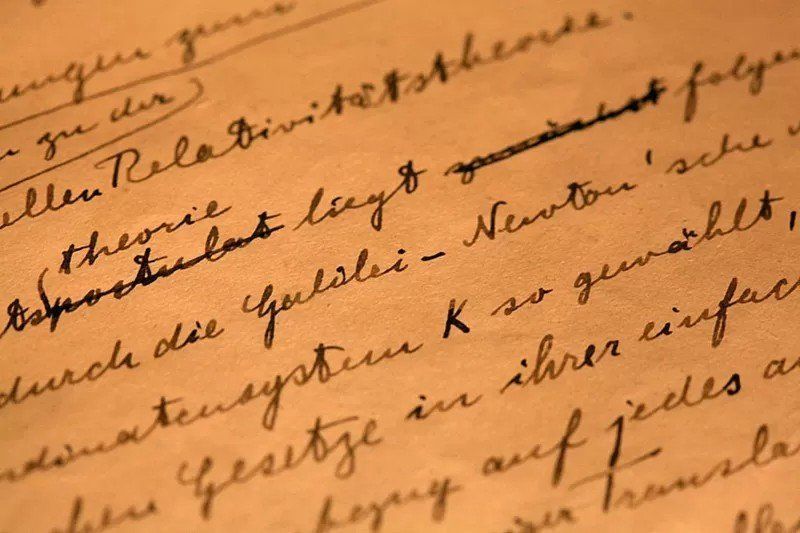 ungen zum
n zu der
ellen Relativitätstheorie.
theorie
tspostulat liegt zunächst folgen
durch die Galilei - Newton'sche
rdinatensystem K so gewählt,
chen Gesetze in ihrer einfach
bezug auf jedes a
Transla